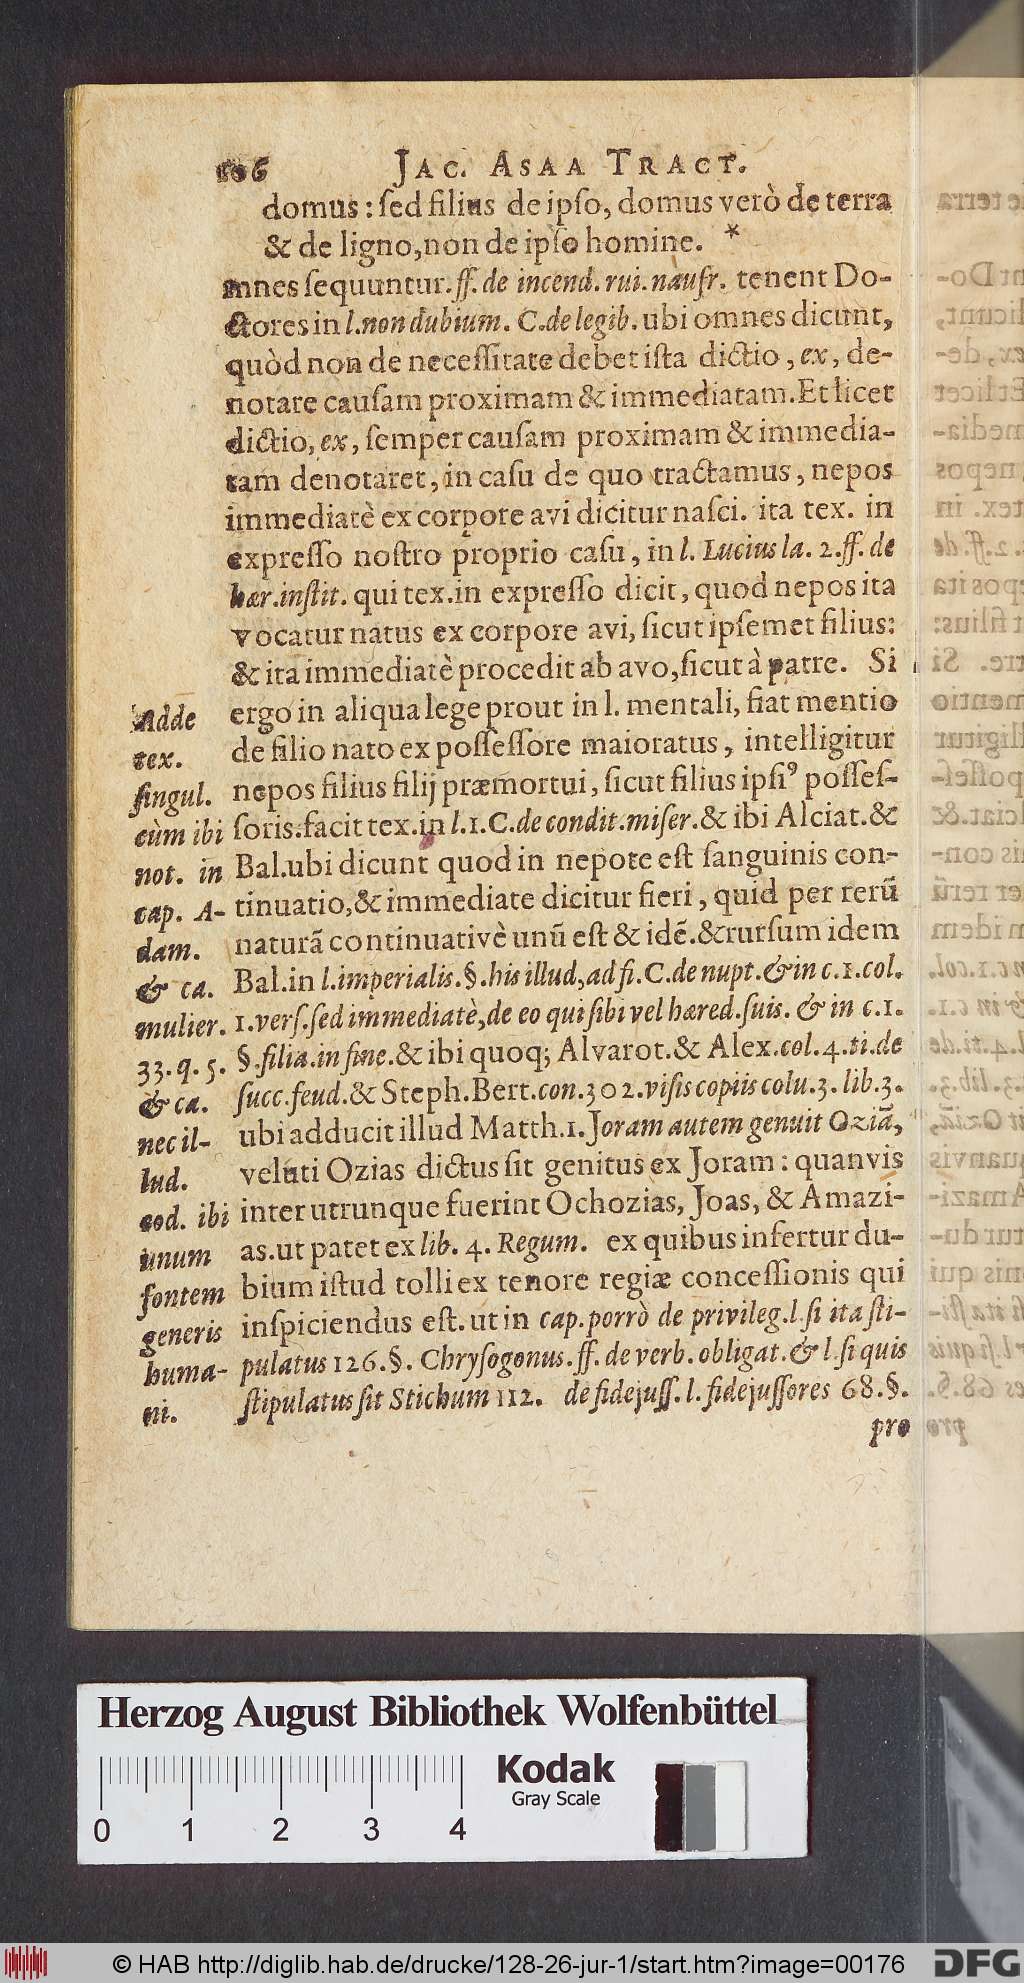 106 JAC. ASAA TRACT.
domus: ſed filius de ipſo, domus verò de terra
& de ligno, non de ipſo homine. *
mnes ſequuntur. ff. de incend. rui. naufr. tenent Do-
ctores in l. non dubium. C. de legib. ubi omnes dicunt,
quòd non de neceſſitate debet iſta dictio, ex, de-
notare cauſam proximam & immediatam. Et licet
dictio, ex, ſemper cauſam proximam & immedia-
tam denotaret, in caſu de quo tractamus, nepos
immediatè ex corpore avi dicitur naſci. ita tex. in
expreſſo noſtro proprio caſu, in l. Lucius la. 2. ff. de
hær. inſtit. qui tex. in expreſſo dicit, quod nepos ita
vocatur natus ex corpore avi, ſicut ipſemet filius:
& ita immediatè procedit ab avo, ſicut à patre. Si
ergo in aliqua lege prout in l. mentali, fiat mentio
de filio nato ex poſſeſſore maioratus, intelligitur
nepos filius filij præmortui, ſicut filius ipſiꝰ poſſeſ-
ſoris: facit tex. in l. 1. C. de condit. miſer. & ibi Alciat. &
Bal. ubi dicunt quod in nepote eſt ſanguinis con-
tinuatio, & immediate dicitur fieri, quid per rerū
naturā continuativè unū eſt & idē. & rurſum idem
Bal. in l. imperialis. §. his illud, ad fi. C. de nupt. & in c. 1. col.
1. verſ. ſed immediatè, de eo qui ſibi vel hæred. ſuis. & in c. 1.
§. filia. in fine. & ibi quoq; Alvarot. & Alex. col. 4. ti. de
ſucc. feud. & Steph. Bert. con. 302. viſis copiis colu. 3. lib. 3.
ubi adducit illud Matth. 1. Joram autem genuit Oziā,
veluti Ozias dictus ſit genitus ex Joram: quanvis
inter utrunque fuerint Ochozias, Joas, & Amazi-
as. ut patet ex lib. 4. Regum. ex quibus infertur du-
bium iſtud tolli ex tenore regiæ conceſſionis qui
inſpiciendus eſt. ut in cap. porrò de privileg. l. ſi ita ſti-
pulatus 126. §. Chryſogonus. ff. de verb. obligat. & l. ſi quis
ſtipulatus ſit Stichum 112. de fidejuſſ. l. fidejuſſores 68. §.
pro
Adde
tex.
ſingul.
cùm ibi
not. in
cap. A-
dam.
& ca.
mulier.
33. q. 5.
& ca.
nec il-
lud.
eod. ibi
unum
fontem
generis
huma-
ni.
Herzog August Bibliothek Wolfenbüttel
Kodak
Gray Scale
0 1 2 3 4
© HAB http://diglib.hab.de/drucke/128-26-jur-1/start.htm?image=00176
DFG